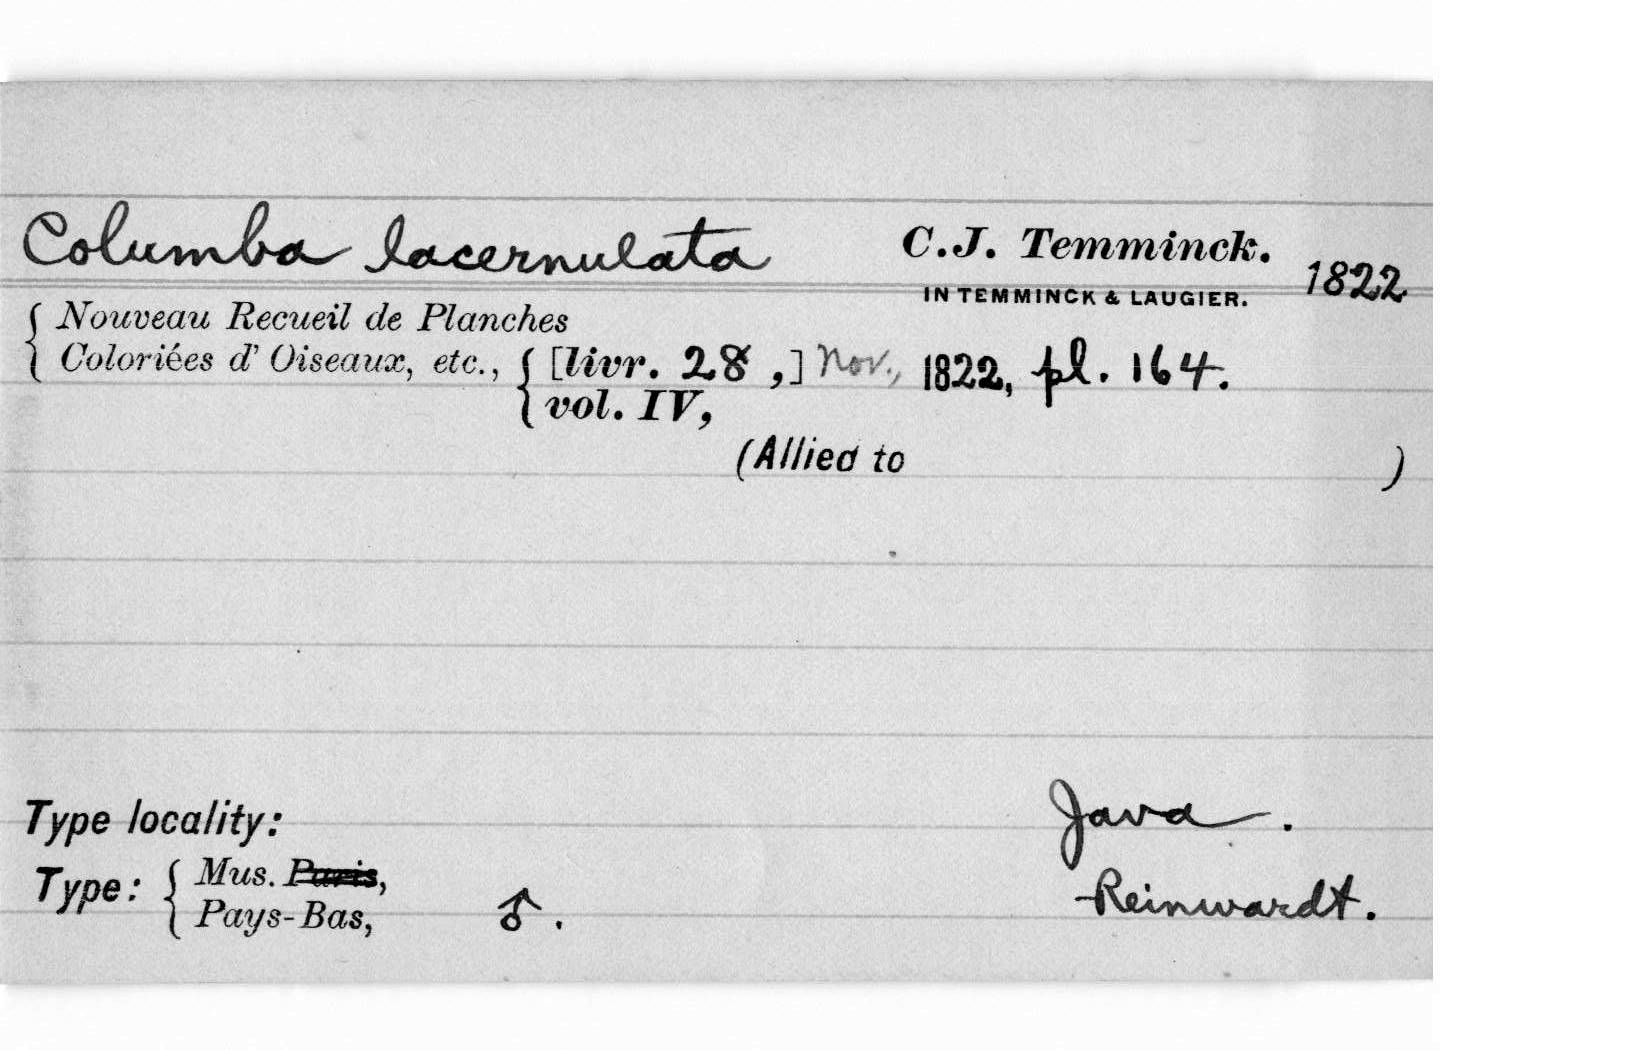 Columba lacernulata C.J. Temminck. 1822
IN TEMMINCK & LAUGIER.
Nouveau Recueil de Planches
Coloriées d' Oiseaux, etc., [livr. 28 ,] Nov., 1822, pl. 164.
vol. IV,
(Allied to )
Type locality: Java .
Type: Mus. Paris, Reinwardt.
Pays-Bas, ♂.